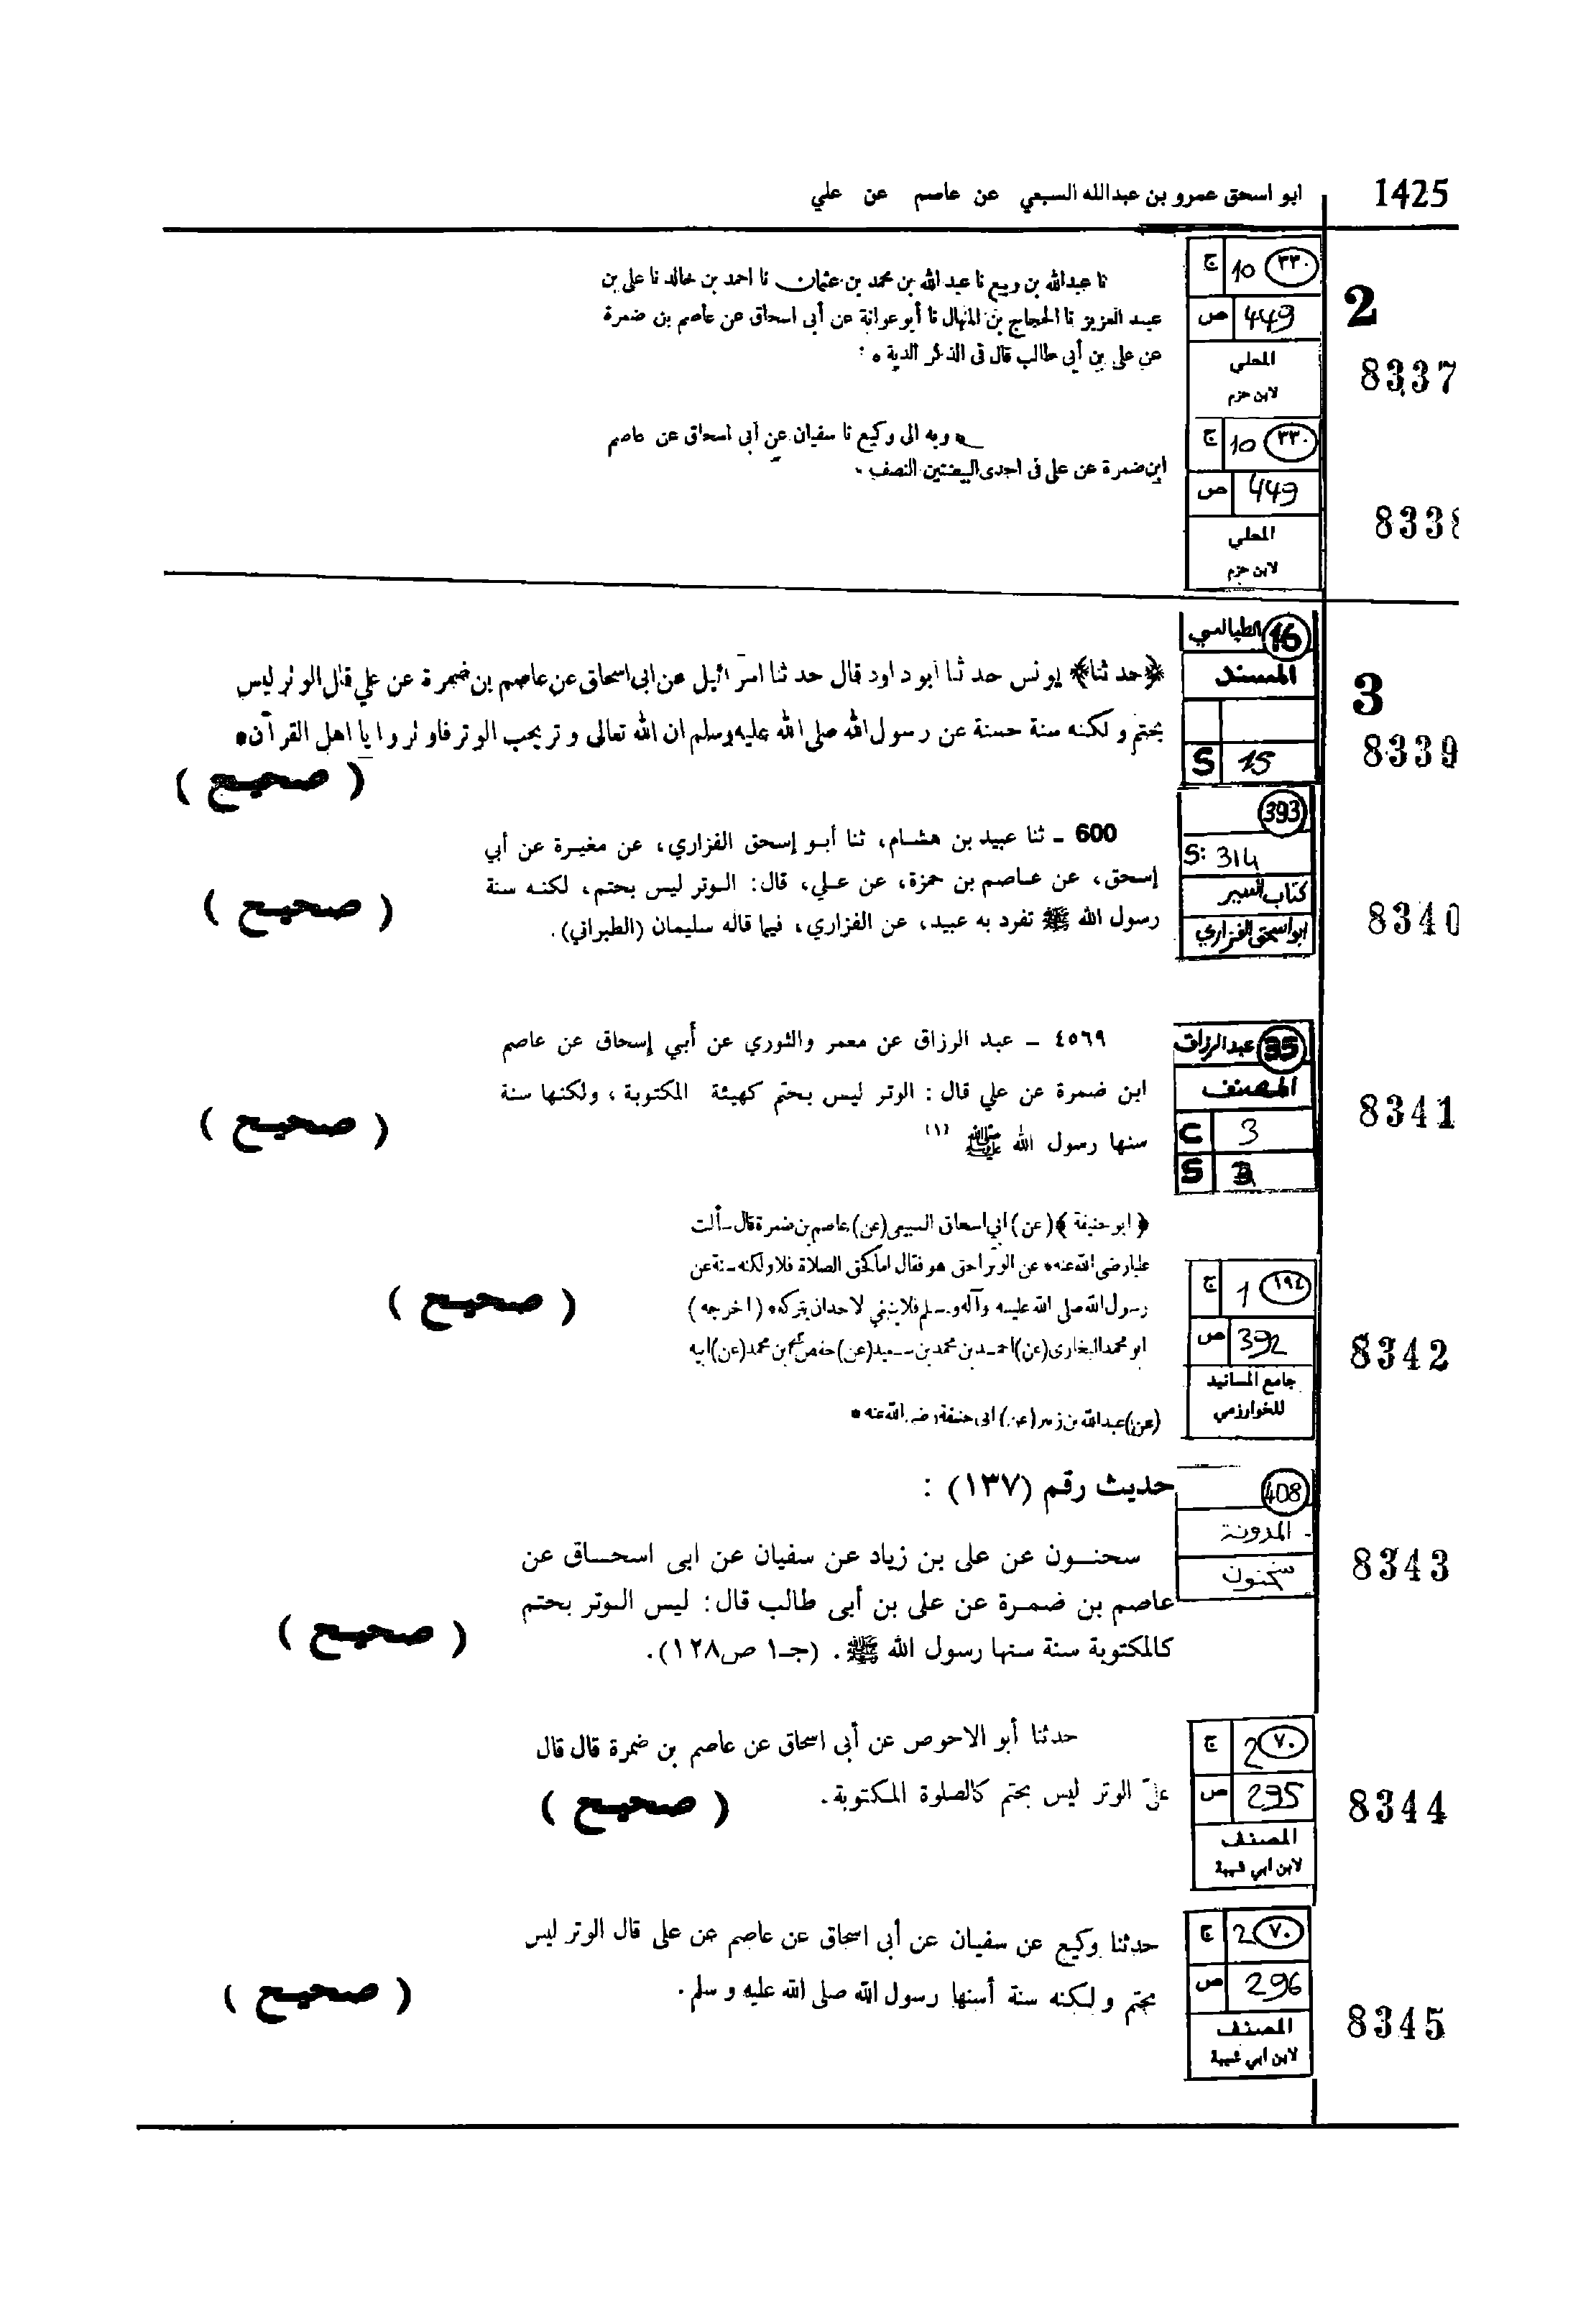 1425
ابو اسحق عمرو بن عبدالله السبعي عن عاصم عن علي
2
8337
ج 10 ٣٣٠
ص 449
المحلي
لابن حزم
نا عبدالله بن ربيع نا عبد الله بن محمد بن عثمان نا احمد بن خالد نا على بن
عبد العزيز نا الحجاج بن المنهال نا أبو عوانة عن أبى اسحاق عن عاصم بن ضمرة
عن على بن أبى طالب قال فى الذكر الدية *
8338
ج 10 ٣٣٠
ص 449
المحلي
لابن حزم
* وبه الى وكيع نا سفيان عن أبى اسحاق عن عاصم
ابن ضمرة عن على فى احدى البيضتين النصف .
3
8339
16 الطيالسي
المسند
S 15
﴿حدثنا﴾ يونس حدثنا ابو داود قال حدثنا اسرائيل عن ابى اسحاق عن عاصم بن ضمرة عن علي قال الوتر ليس
بحتم ولكنه سنة حسنة عن رسول الله صلى الله عليه وسلم ان الله تعالى وتر يحب الوتر فاوتروا يا اهل القرآن *
( صحيح )
8340
393
S: 314
كتاب السير
ابو اسحق الفزاري
600 ـ ثنا عبيد بن هشام، ثنا أبو إسحق الفزاري، عن مغيرة عن أبي
إسحق، عن عاصم بن حمزة، عن علي، قال: الوتر ليس بحتم، لكنه سنة
رسول الله ﷺ تفرد به عبيد، عن الفزاري، فيما قاله سليمان (الطبراني).
( صحيح )
8341
35 عبد الرزاق
المصنف
C 3
S 3
٤٥٦٩ ـ عبد الرزاق عن معمر والثوري عن أبي إسحاق عن عاصم
ابن ضمرة عن علي قال : الوتر ليس بحتم كهيئة المكتوبة ، ولكنها سنة
سنها رسول الله ﷺ (١)
( صحيح )
8342
ج 1 ١٩٤
ص 392
جامع المسانيد
للخوارزمي
﴿ ابو حنيفة ﴾ (عن) ابى اسحاق السبيعى (عن) عاصم بن ضمرة قال سألت
عليا رضى الله عنه عن الوتر احق هو فقال اما كحق الصلاة فلا ولكنه سنة عن
رسول الله صلى الله عليه وآله وسلم فلا ينبغي لاحد ان يتركه * (اخرجه)
ابو محمد البخارى (عن) احمد بن محمد بن سعيد (عن) حفص بن محمد (عن) ابيه
(عن) عبد الله بن زبير (عن) ابى حنيفة رضى الله عنه *
( صحيح )
8343
408
المدونة
سحنون
حديث رقم (١٣٧) :
سحنون عن على بن زياد عن سفيان عن ابى اسحاق عن
عاصم بن ضمرة عن على بن أبى طالب قال: ليس الوتر بحتم
كالمكتوبة سنة سنها رسول الله ﷺ . (جـ١ ص١٢٨).
( صحيح )
8344
ج 2 ٧٠
ص 295
المصنف
لابن ابي شيبة
حدثنا أبو الاحوص عن أبى اسحاق عن عاصم بن ضمرة قال قال
علىّ الوتر ليس بحتم كالصلوة المكتوبة.
( صحيح )
8345
ج 2 ٧٠
ص 296
المصنف
لابن ابي شيبة
حدثنا وكيع عن سفيان عن أبى اسحاق عن عاصم عن على قال الوتر ليس
بحتم ولكنه سنة أسنها رسول الله صلى الله عليه وسلم.
( صحيح )